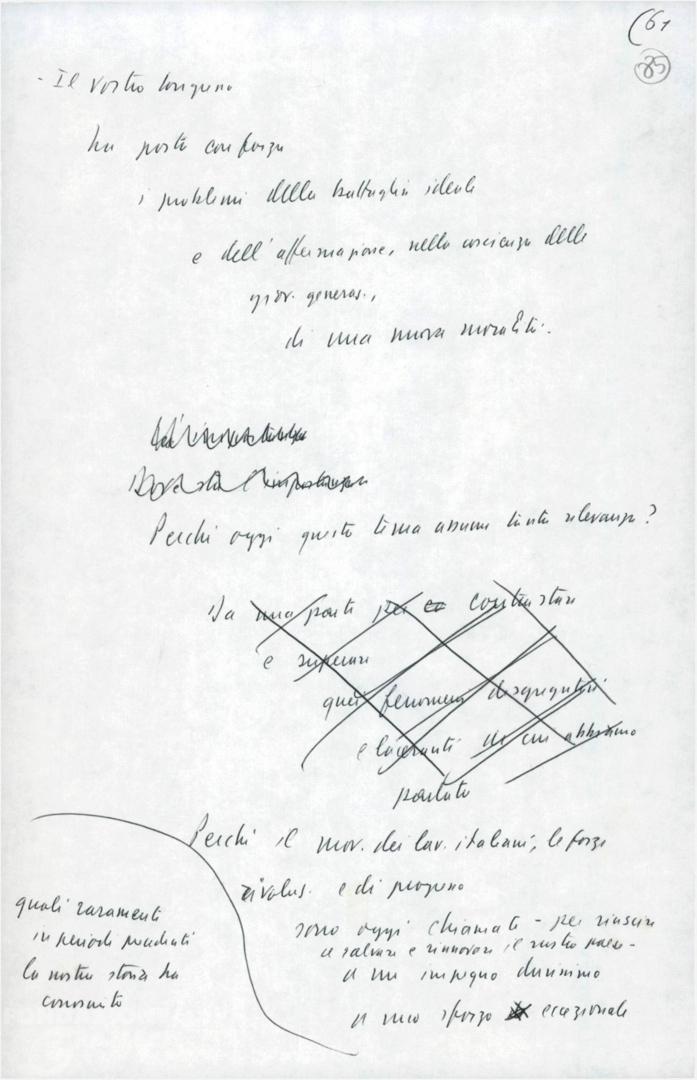 (61
85
- Il vostro congresso
ha posto con forza
i problemi della battaglia ideale
e dell'affermazione, nella coscienza delle
giov. generaz.,
di una nuova moralità.
Perché oggi questo tema assume tanta rilevanza?
Da una parte per contrastare
e superare
quei fenomeni disgregatori
e laceranti di cui abbiamo
parlato
Perché il mov. dei lav. italiani, le forze
rivoluz. e di progresso
sono oggi chiamate - per riuscire
a salvare e rinnovare il nostro paese -
a un impegno durissimo
a uno sforzo eccezionale
quali raramente
in periodi precedenti
la nostra storia ha
conosciuto